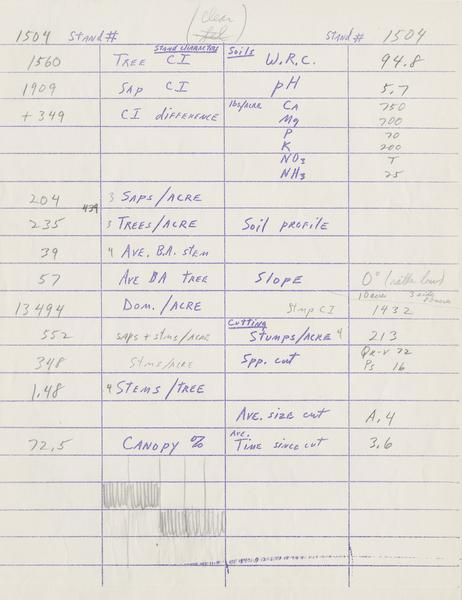 (clear
1504 Stand# Stand# 1504
Stand Characters Soils
1560 Tree CI W.R.C. 94.8
1909 Sap CI pH 5.7
+349 CI difference lbs/acre Ca 750
Mg 700
P 70
K 200
NO3 T
NH3 25
204 3 Saps/acre
439
235 3 Trees/acre Soil profile
39 4 Ave. B.A. stem
57 Ave BA tree Slope 0°
13494 Dom./acre Stmp CI 1432
Cutting
552 saps + stms/acre Stumps/acre 4 213
348 Stms/acre Spp. cut Qr-v 22
Ps 16
1.48 4 Stems/tree
Ave. size cut A.4
72.5 Canopy % Ave. Time since cut 3.6